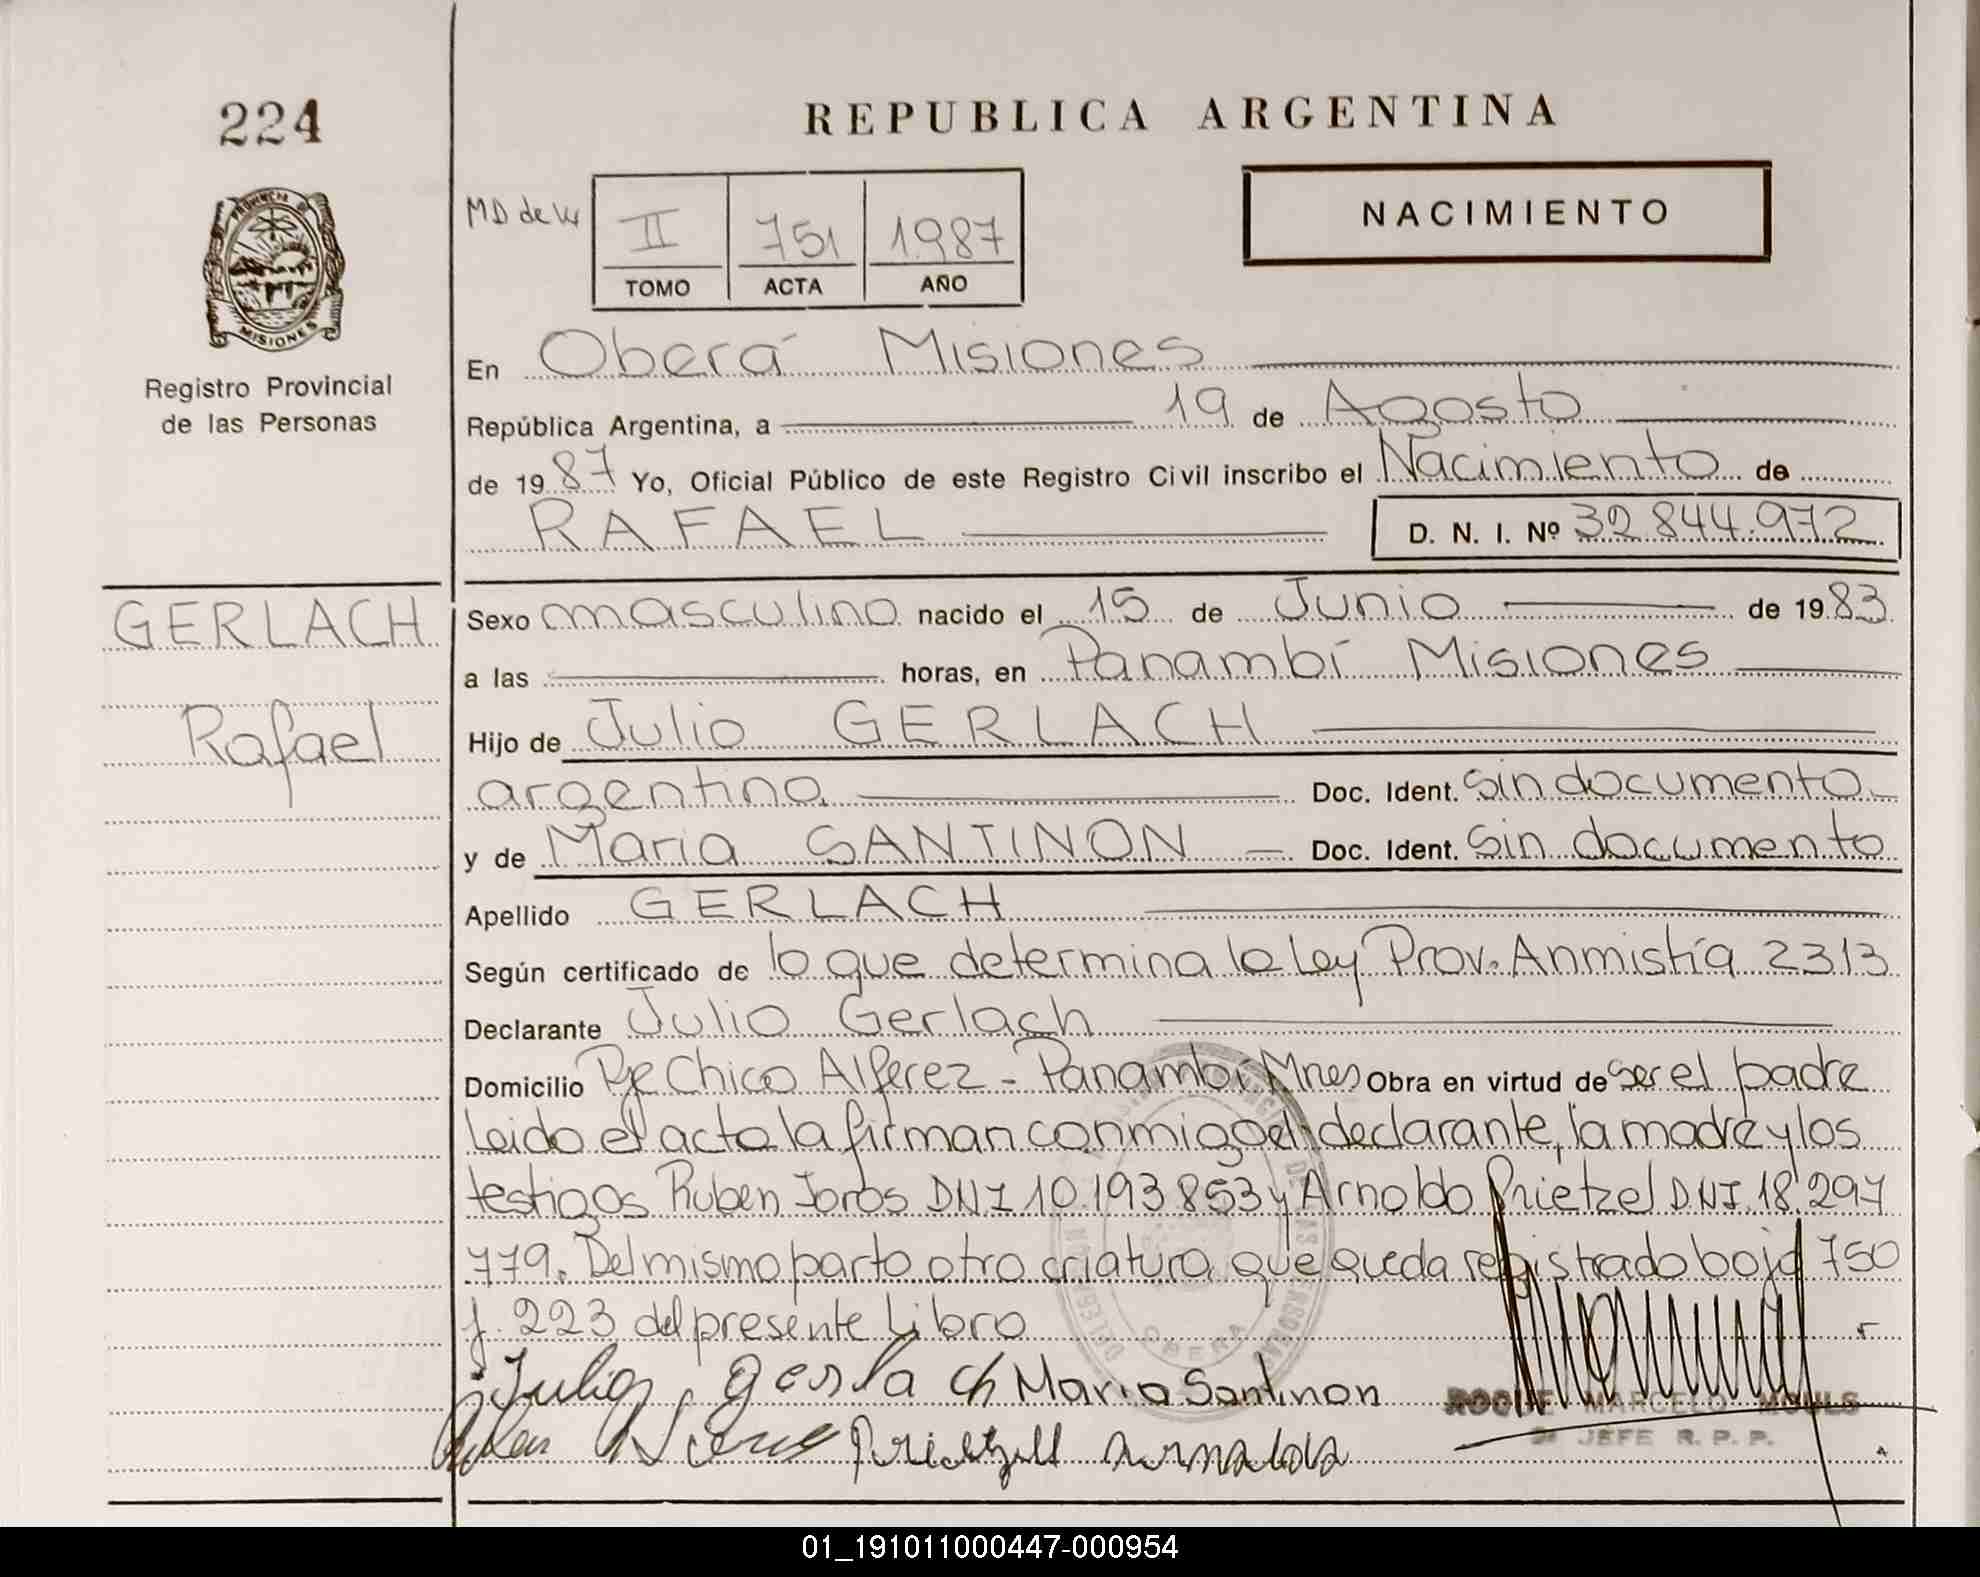 224
REPUBLICA ARGENTINA
NACIMIENTO
PROVINCIA DE
MISIONES
Registro Provincial
de las Personas
MD de
II 751 1987
TOMO ACTA AÑO
En Oberá Misiones
República Argentina, a 19 de Agosto
de 1987 Yo, Oficial Público de este Registro Civil inscribo el Nacimiento de
RAFAEL D. N. I. Nº 32.844.972
GERLACH
Rafael
Sexo masculino nacido el 15 de Junio de 1983
a las horas, en Panambí Misiones
Hijo de Julio GERLACH
argentino Doc. Ident. Sin documento
y de Maria SANTINON Doc. Ident. Sin documento
Apellido GERLACH
Según certificado de lo que determina la Ley Prov. Anmistía 2313
Declarante Julio Gerlach
Domicilio Pje Chico Alferez - Panambí Mnes Obra en virtud de ser el padre
Leido el acta la firman conmigo el declarante, la madre y los
testigos Ruben Joros DNI 10.193.853 y Arnoldo Prietzel DNI. 18.297
779. Del mismo parto otra criatura que queda registrado bajo 750
f. 223 del presente Libro
OBERA
Julio gerla ch Maria Santinon
ROQUE MARCELO MOULS
2º JEFE R. P. P.
01_191011000447-000954